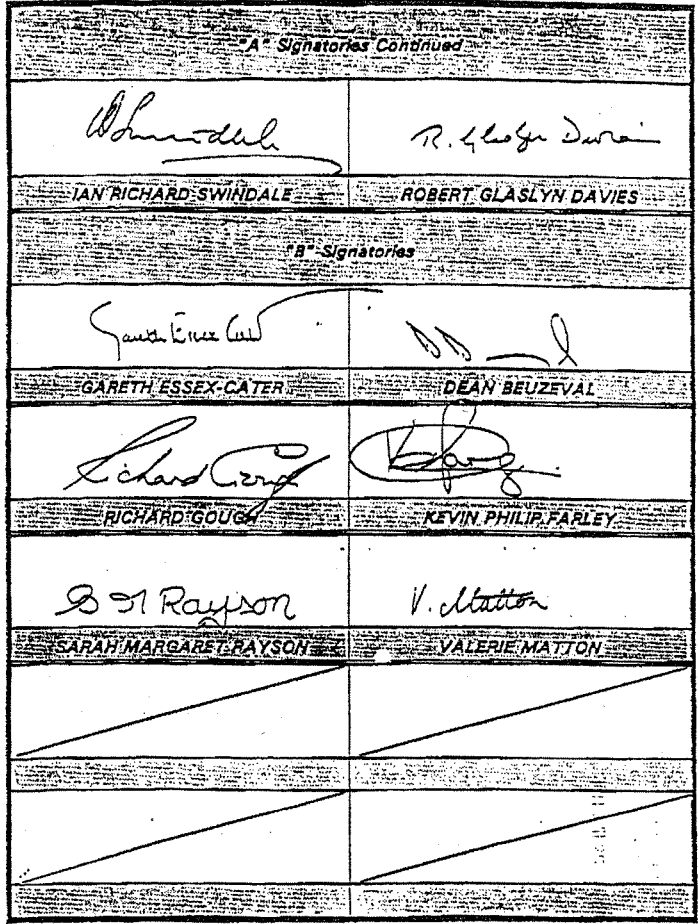 "A" Signatories Continued
R. Glaslyn Davies
IAN RICHARD SWINDALE ROBERT GLASLYN DAVIES
"B" Signatories
Gareth Essex Cater
GARETH ESSEX-CATER DEAN BEUZEVAL
Richard Gough
RICHARD GOUGH KEVIN PHILIP FARLEY
S M Rayson V. Matton
SARAH MARGARET RAYSON VALERIE MATTON